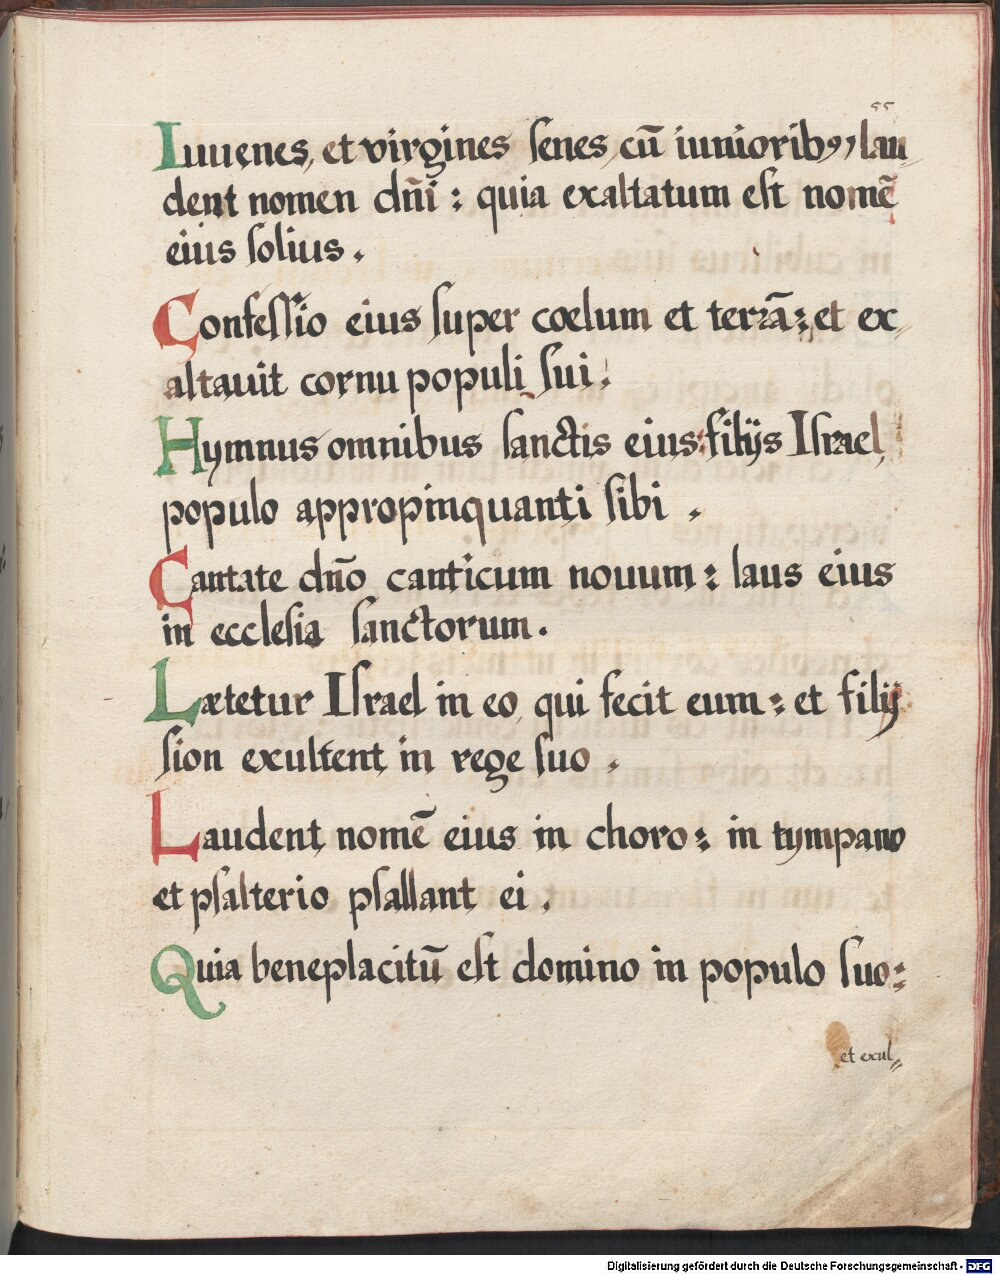 55
Iuuenes, et virgines senes, cū iuniorib9, lau-
dent nomen dñi : quia exaltatum est nomē
eius solius.
Confessio eius super coelum et terrā : et ex-
altauit cornu populi sui.
Hymnus omnibus sanctis eius : filijs Israel,
populo appropinquanti sibi.
Cantate dño canticum nouum : laus eius
in ecclesia sanctorum.
Lætetur Israel in eo, qui fecit eum : et filij
sion exultent in rege suo.
Laudent nomē eius in choro : in tympano
et psalterio psallant ei.
Quia beneplacitū est domino in populo suo :
et exul-
Digitalisierung gefördert durch die Deutsche Forschungsgemeinschaft - DFG